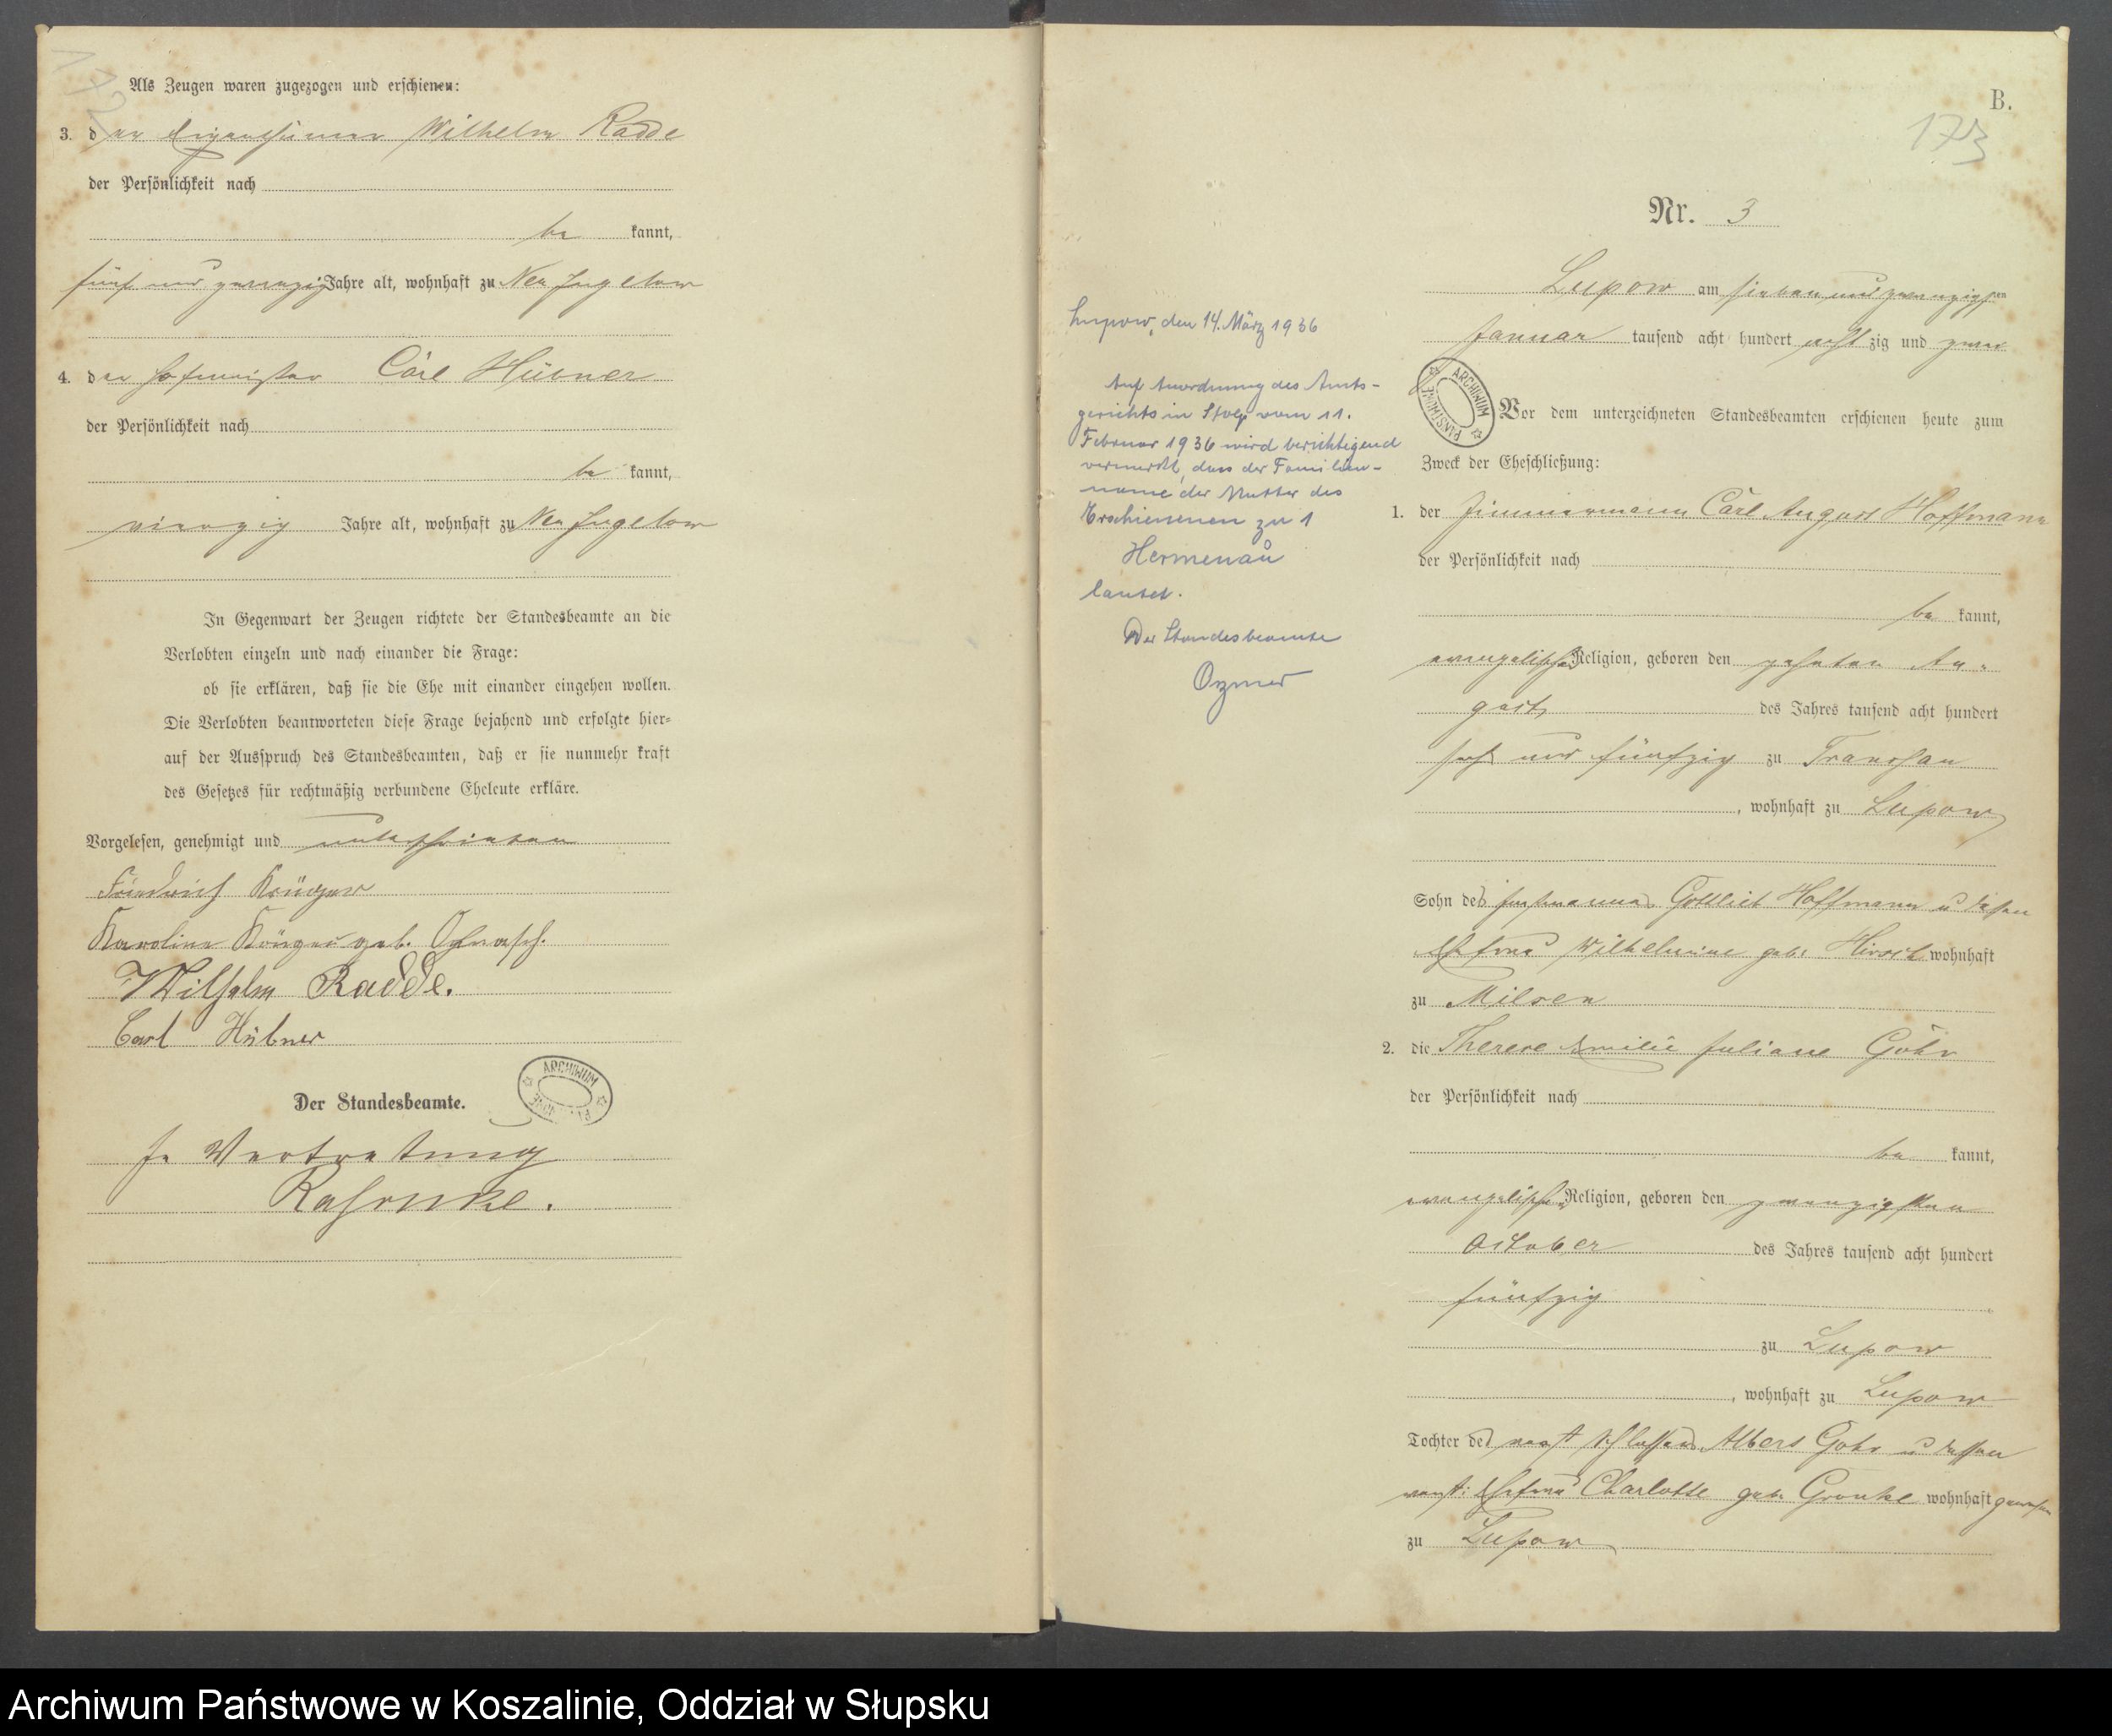 Als Zeugen waren zugezogen und erschienen:
3. der Eigenthümer Wilhelm Radde
der Persönlichkeit nach
be kannt,
fünf und zwanzig Jahre alt, wohnhaft zu Neu Jugelow
4. der Hofmeister Carl Hübner
der Persönlichkeit nach
be kannt,
vierzig Jahre alt, wohnhaft zu Neu Jugelow
In Gegenwart der Zeugen richtete der Standesbeamte an die
Verlobten einzeln und nach einander die Frage:
ob sie erklären, daß sie die Ehe mit einander eingehen wollen.
Die Verlobten beantworteten diese Frage bejahend und erfolgte hier=
auf der Ausspruch des Standesbeamten, daß er sie nunmehr kraft
des Gesetzes für rechtmäßig verbundene Eheleute erkläre.
Vorgelesen, genehmigt und unterschrieben
Friedrich Krüger
Karoline Krüger geb.
Wilhelm Radde.
Carl Hübner
ARCHIWUM
Der Standesbeamte.
In Vertretung
B.
173
Nr. 3
Lupow am sieben und zwanzigsten
Januar tausend acht hundert acht zig und zwei
ARCHIWUM PAŃSTWOWE
Vor dem unterzeichneten Standesbeamten erschienen heute zum
Zweck der Eheschließung:
1. der Zimmermann Carl August Hoffmann
der Persönlichkeit nach
be kannt,
evangelischer Religion, geboren den zehnten Au-
gust des Jahres tausend acht hundert
sechs und fünfzig zu
, wohnhaft zu Lupow
Sohn des Gottlieb Hoffmann u dessen
Ehefrau Wilhelmine geb. wohnhaft
zu
2. die Therese Emilie Juliane Göhr
der Persönlichkeit nach
be kannt,
evangelischer Religion, geboren den zwanzigsten
October des Jahres tausend acht hundert
fünfzig
zu Lupow
, wohnhaft zu Lupow
Tochter des verst Albert Göhr u dessen
verst: Ehefrau Charlotte geb. wohnhaft gewesen
zu Lupow
Lupow, den 14. März 1936
Auf Anordnung des Amts-
gerichts in Stolp vom 11.
Februar 1936 wird berichtigend
vermerkt, dass der Familien-
name der Mutter des
Erschienenen zu 1
Hermenau
lautet.
Der Standesbeamte
Archiwum Państwowe w Koszalinie, Oddział w Słupsku